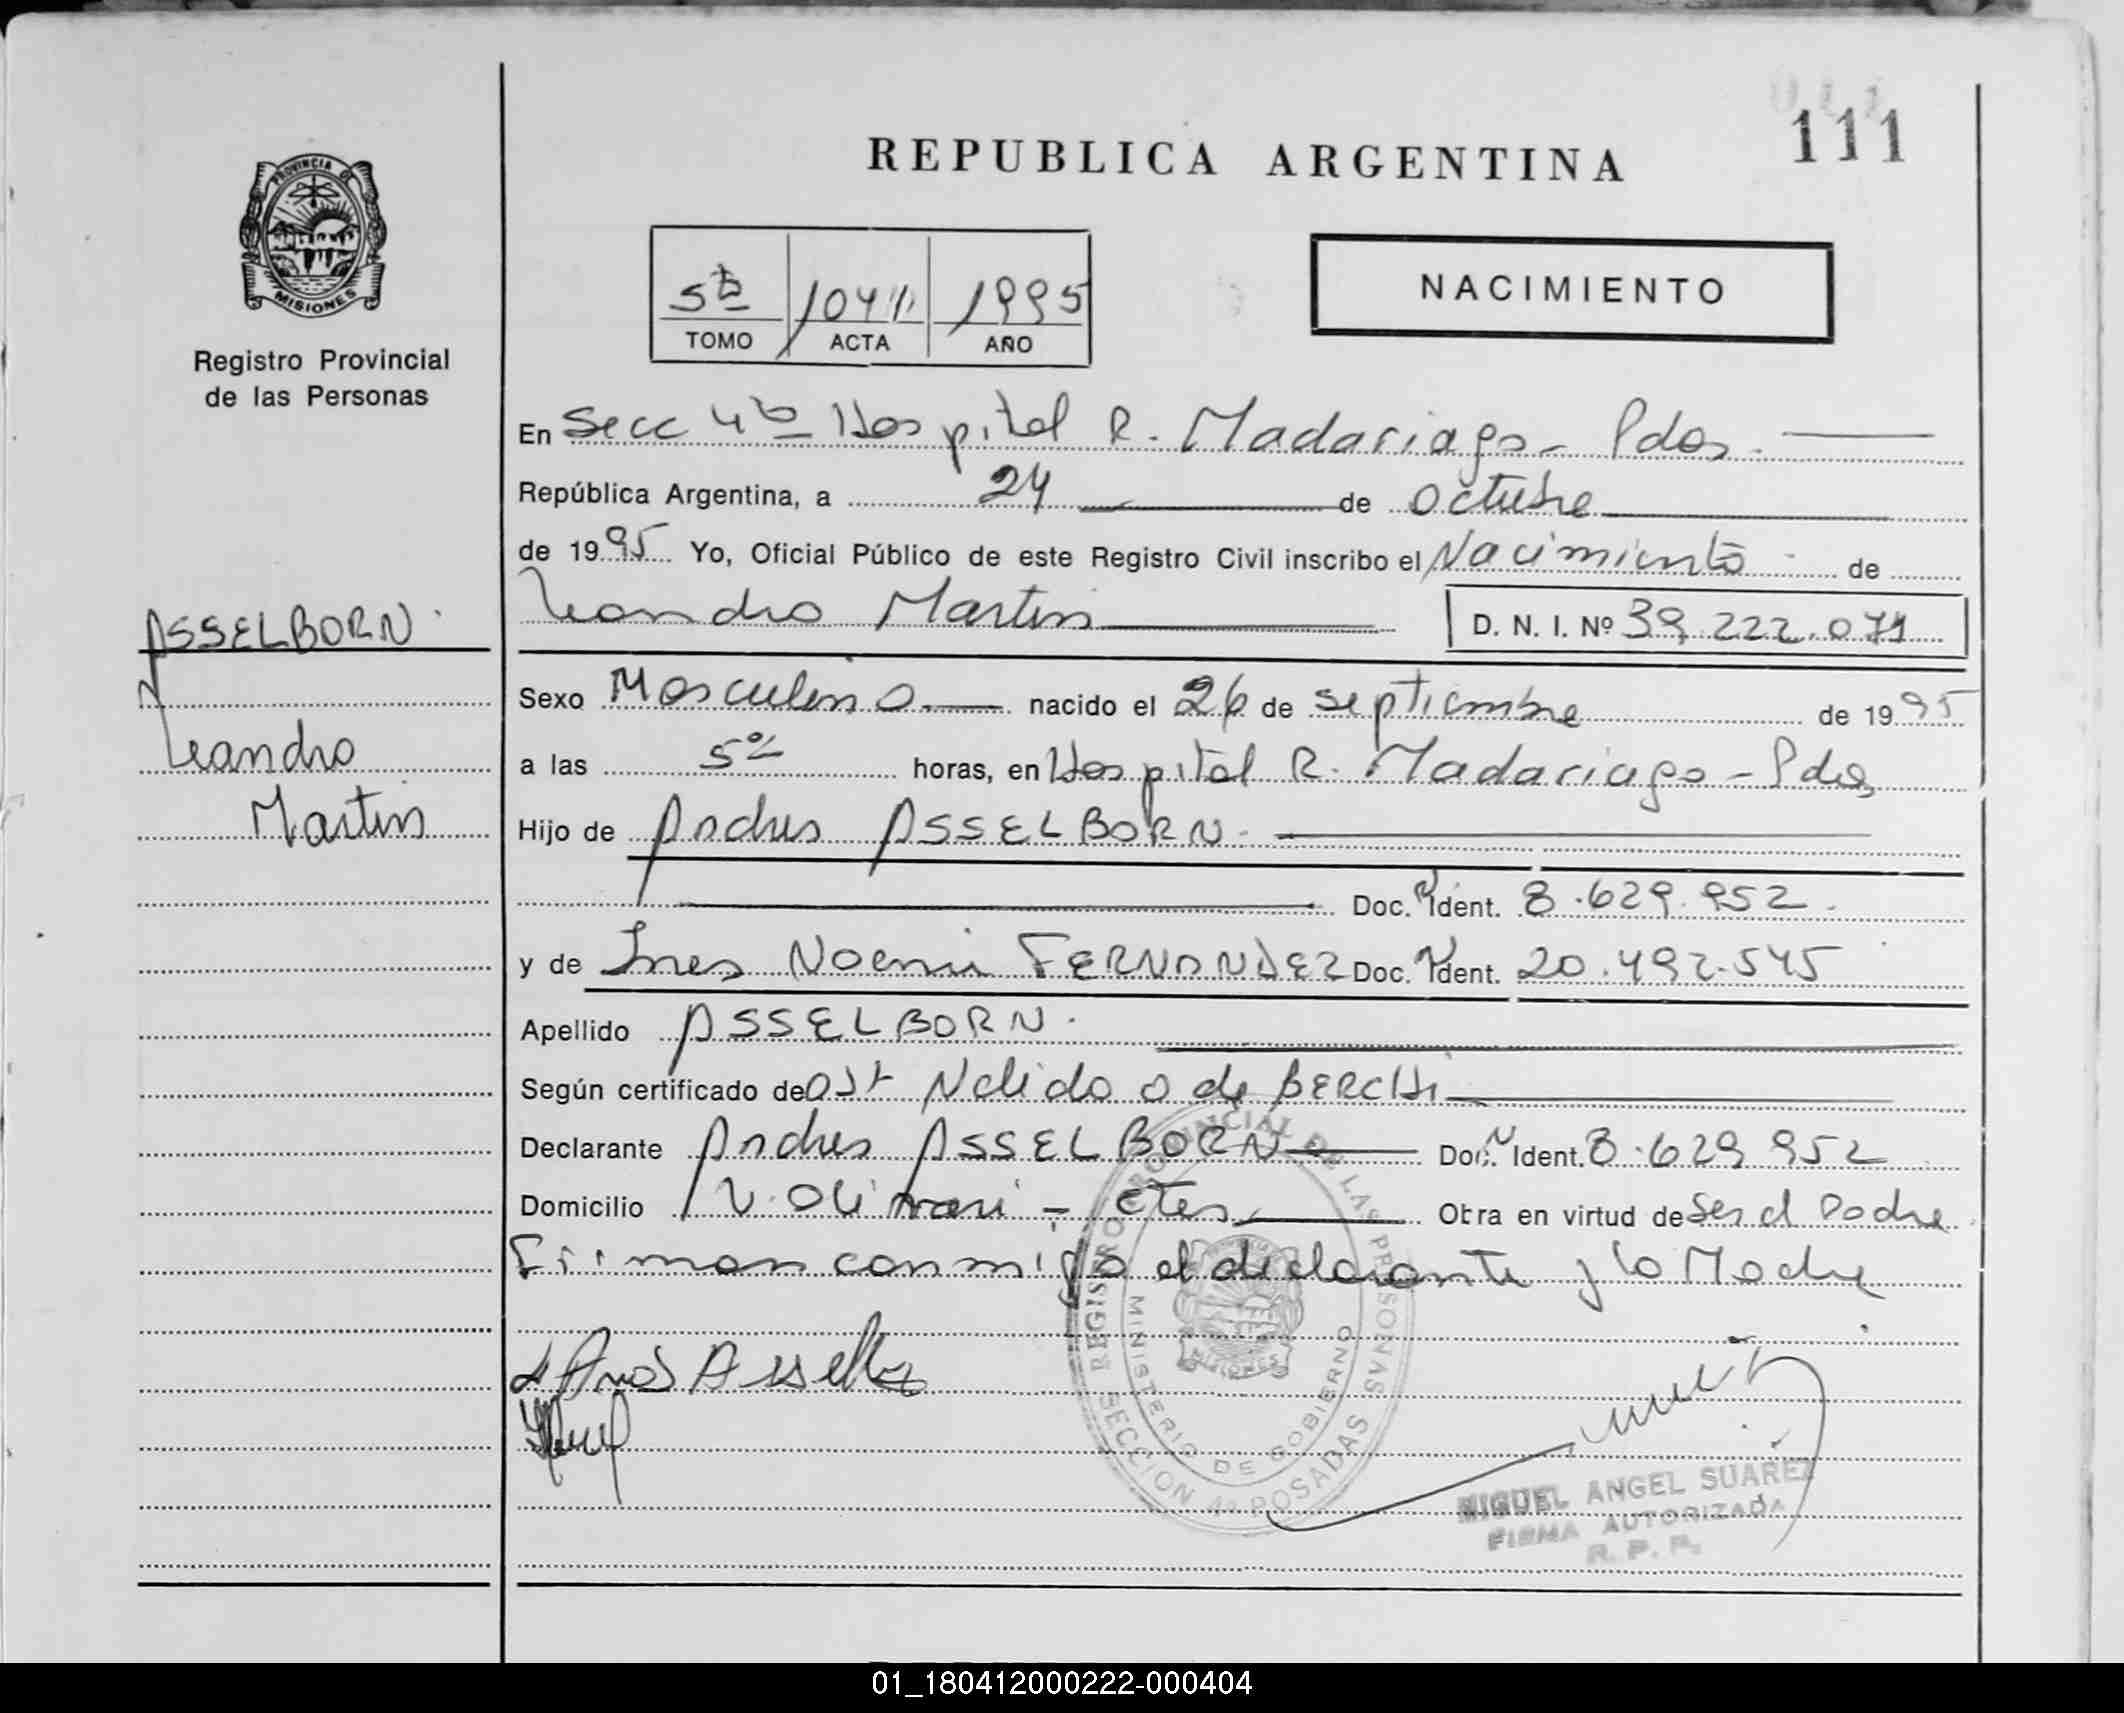 111
REPUBLICA ARGENTINA
PROVINCIA DE
MISIONES
Registro Provincial
de las Personas
5to 1995
TOMO ACTA AÑO
NACIMIENTO
En Secc 4ta Hospital R. Madariaga - Pdas.
República Argentina, a 24 de octubre
de 1995 Yo, Oficial Público de este Registro Civil inscribo el Nacimiento de
Leandro Martin D. N. I. Nº 39.222.071
ASSELBORN.
Leandro
Martin
Sexo Masculino nacido el 26 de septiembre de 1995
a las 5 horas, en Hospital R. Madariaga - Pdas
Hijo de Andres ASSELBORN.
Doc. N Ident. 8.629.952.
y de Ines Noemi FERNANDEZ Doc. N Ident. 20.492.545
Apellido ASSELBORN.
Según certificado de Obst Nelida O de BERCHI
Declarante Andres ASSELBORN Doc. N Ident. 8.629.952
Domicilio V. Olivari - Ctes Obra en virtud de Ser el Padre
Firman conmigo el declarante y la Madre
REGISTRO PROVINCIAL DE LAS PERSONAS
MINISTERIO DE GOBIERNO
MISIONES
SECCION 4ª POSADAS
MIGUEL ANGEL SUAREZ
FIRMA AUTORIZADA
R. P. P.
01_180412000222-000404